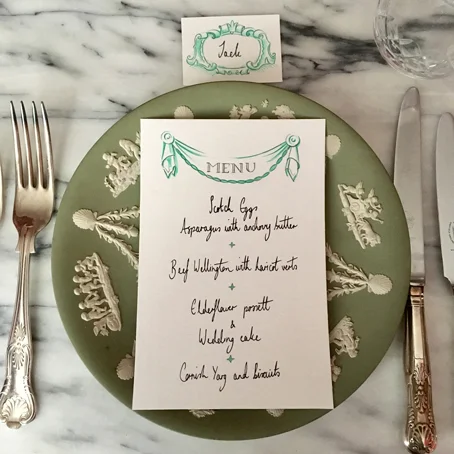 Jack
MENU
Scotch Eggs
Asparagus with anchovy butter
+
Beef Wellington with haricot verts
+
Elderflower possett
&
Wedding cake
+
Cornish Yarg and biscuits